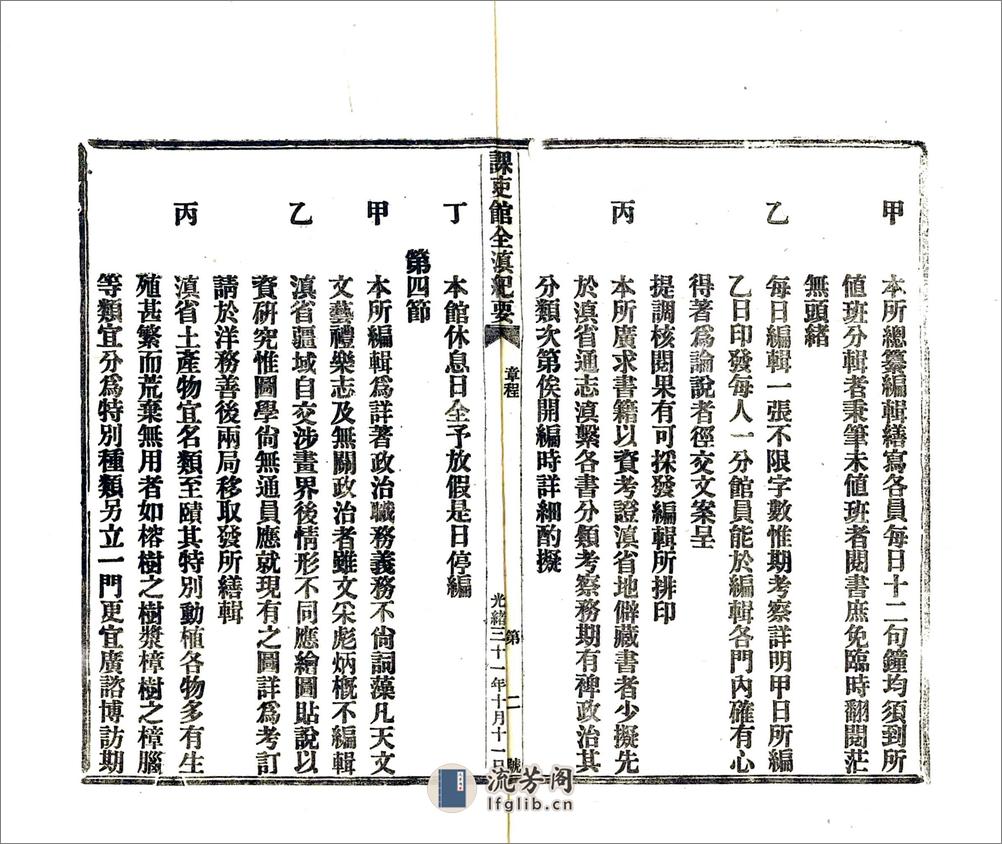 甲
本所總纂編輯繕寫各員每日十二句鐘均須到所
値班分輯者秉筆未値班者閱書庶免臨時翻閱茫
無頭緖
乙
每日編輯一張不限字數惟期考察詳明甲日所編
乙日印發每人一分館員能於編輯各門內確有心
得著爲論說者徑交文案呈
提調核閱果有可採發編輯所排印
丙
本所廣求書籍以資考證滇省地僻藏書者少擬先
於滇省通志滇繫各書分類考察務期有裨政治其
分類次第俟開編時詳細酌擬
課吏館全滇紀要
章程
第二號
光緖三十一年十月十一日
丁
本館休息日全予放假是日停編
第四節
甲
本所編輯爲詳著政治職務義務不尙詞藻凡天文
文藝禮樂志及無關政治者雖文采彪炳槪不編輯
乙
滇省疆域自交涉畫界後情形不同應繪圖貼說以
資硏究惟圖學尙無通員應就現有之圖詳爲考訂
請於洋務善後兩局移取發所繕輯
丙
滇省土產物宜名類至賾其特別動植各物多有生
殖甚繁而荒棄無用者如榕樹之樹漿樟樹之樟腦
等類宜分爲特別種類另立一門更宜廣諮博訪期
流芳阁
lfglib.cn